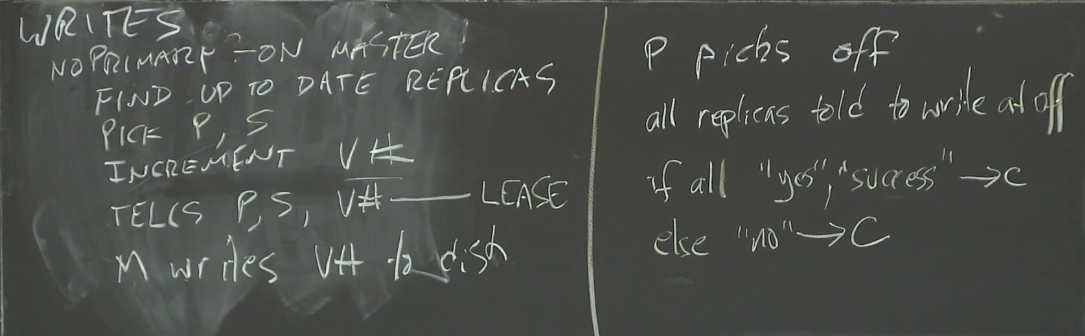 WRITES
NO PRIMARY? - ON MASTER
FIND UP TO DATE REPLICAS
PICK P, S
INCREMENT V#
TELLS P, S, V# — LEASE
M writes V# to disk
P picks off
all replicas told to write at off
if all "yes", "success" → C
else "no" → C